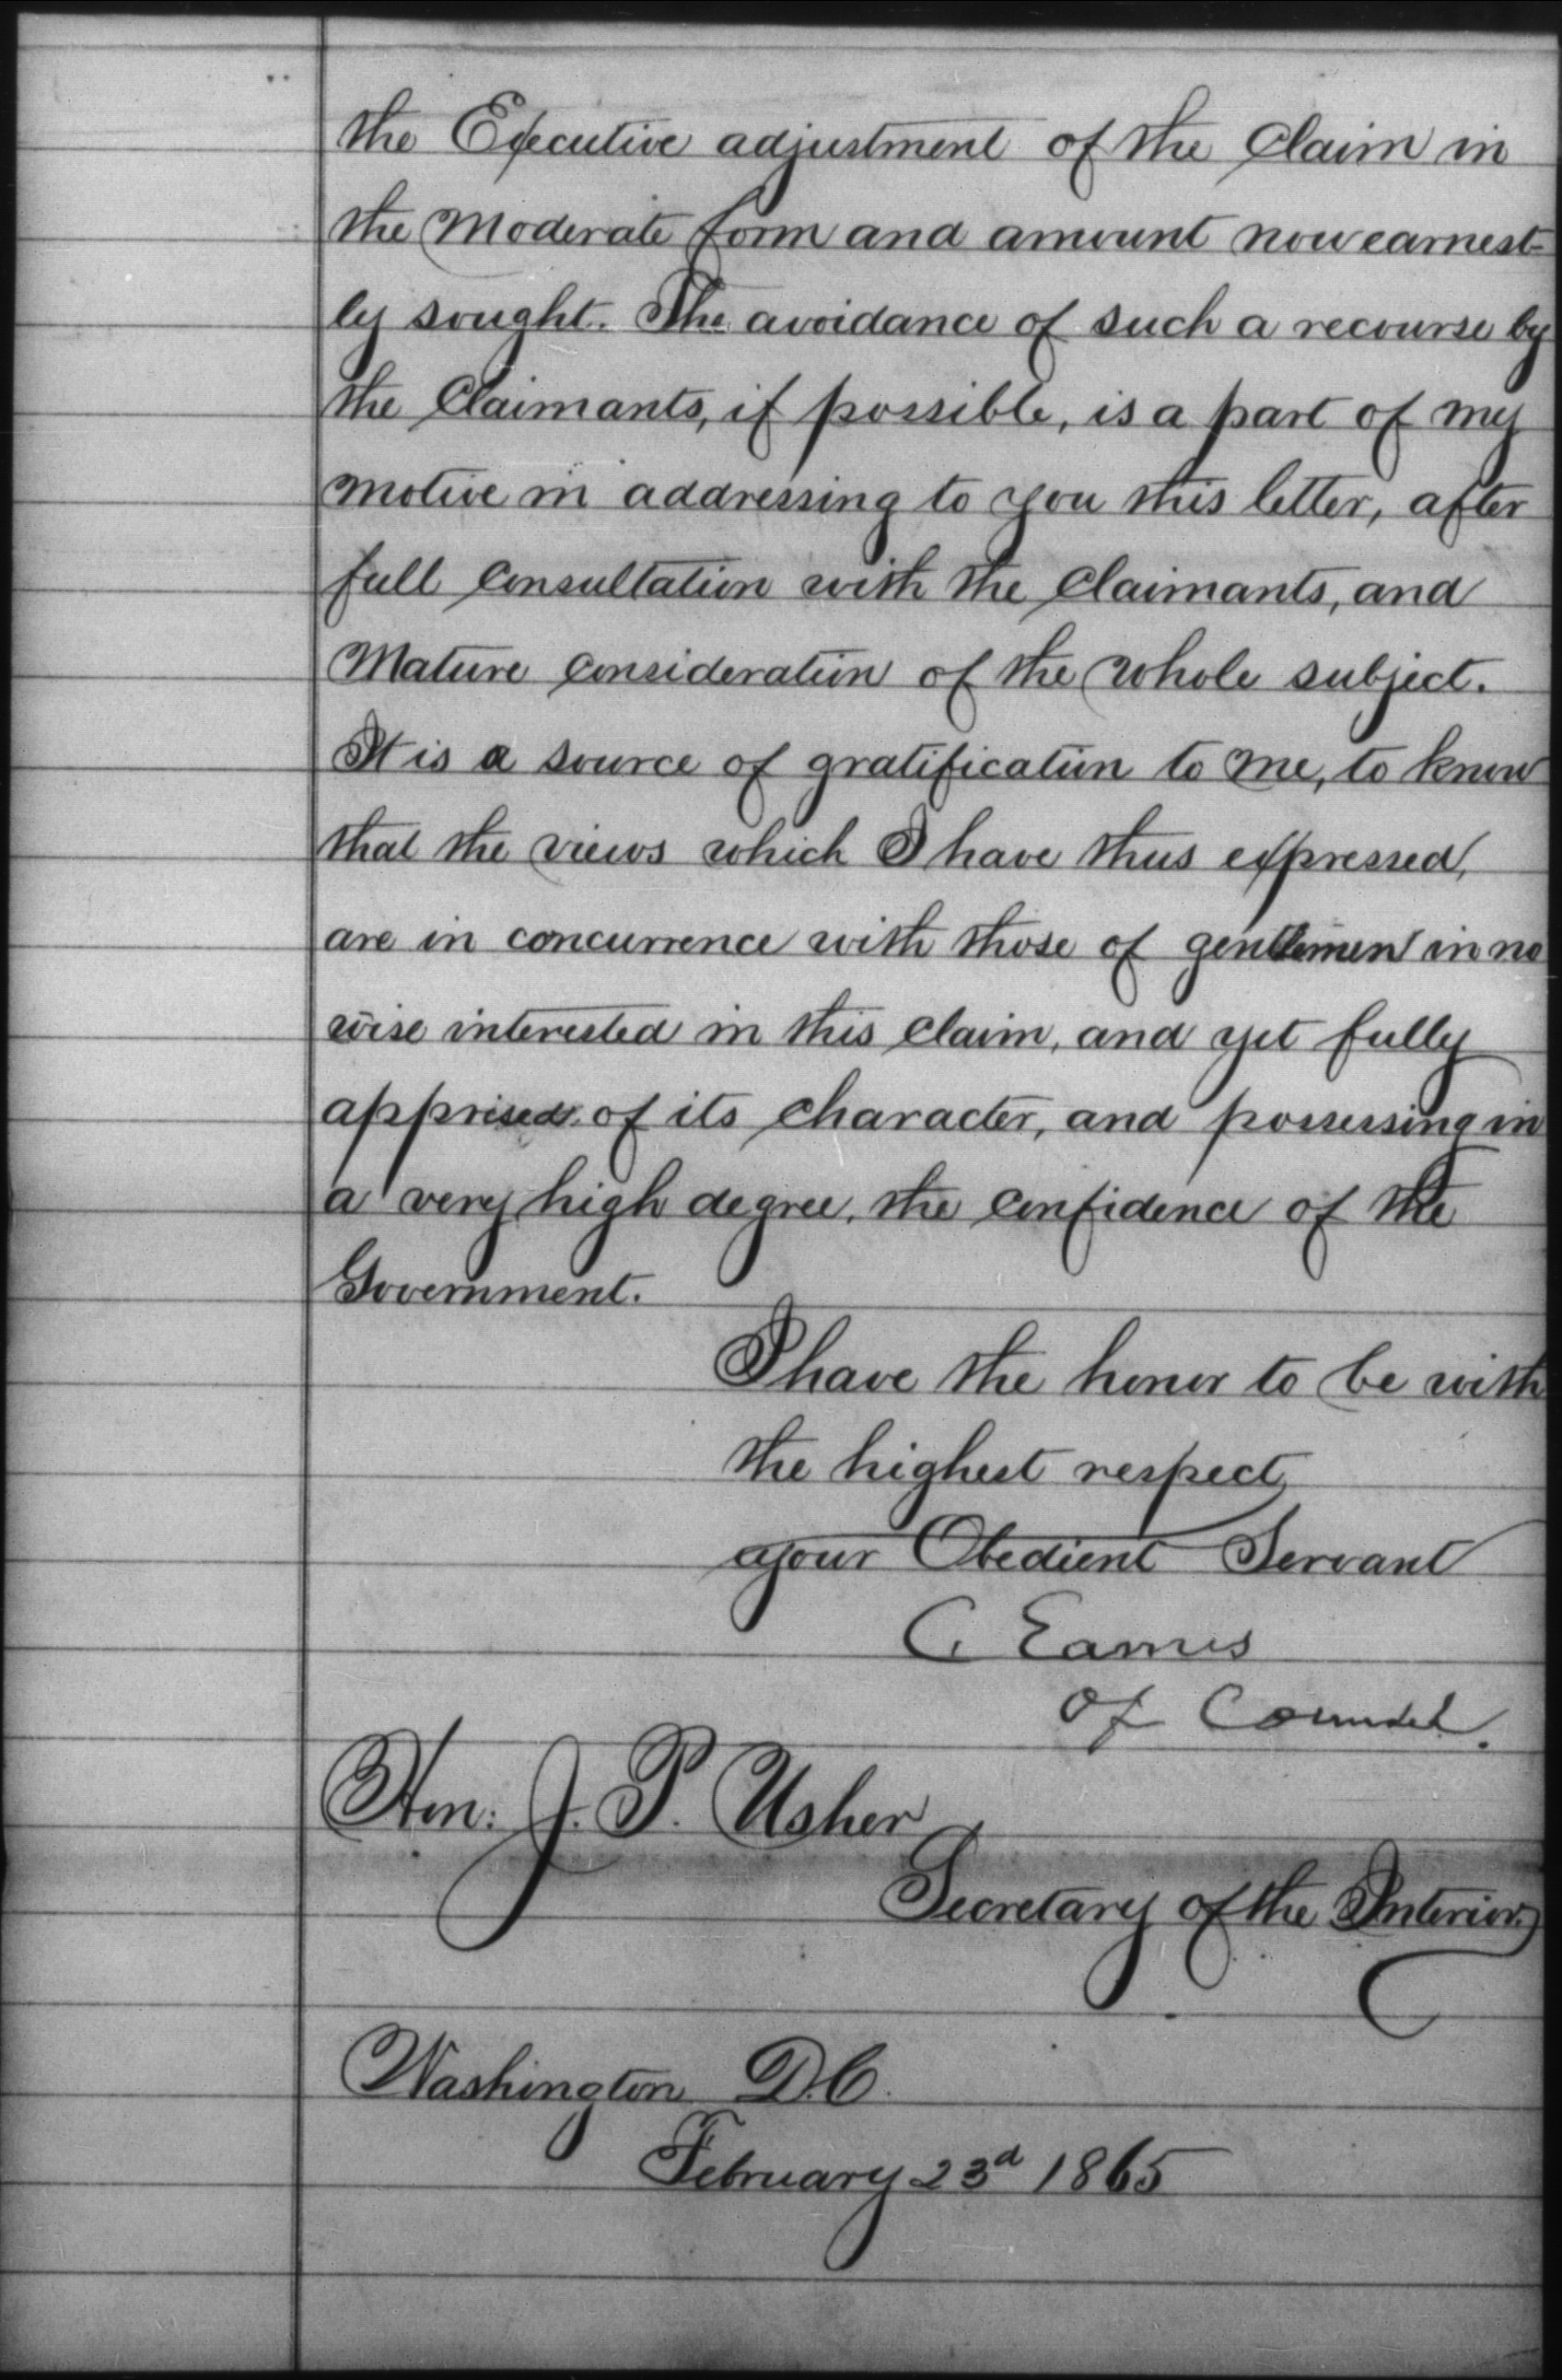 the Executive adjustment of the Claim in
the Moderate form and amount now earnest-
ly sought. The avoidance of such a recourse by
the Claimants, if possible, is a part of my
motive in addressing to you this letter, after
full Consultation with the Claimants, and
Mature Consideration of the whole subject.
It is a source of gratification to me, to know
that the views which I have thus expressed,
are in concurrence with those of gentlemen in no
wise interested in this Claim, and yet fully
apprised of its Character, and possessing in
a very high degree, the Confidence of the
Government.
I have the honor to be with
the highest respect
your Obedient Servant
C. Eames
Of Counsel.
Hon: J. P. Usher
Secretary of the Interior.
Washington D.C.
February 23d 1865